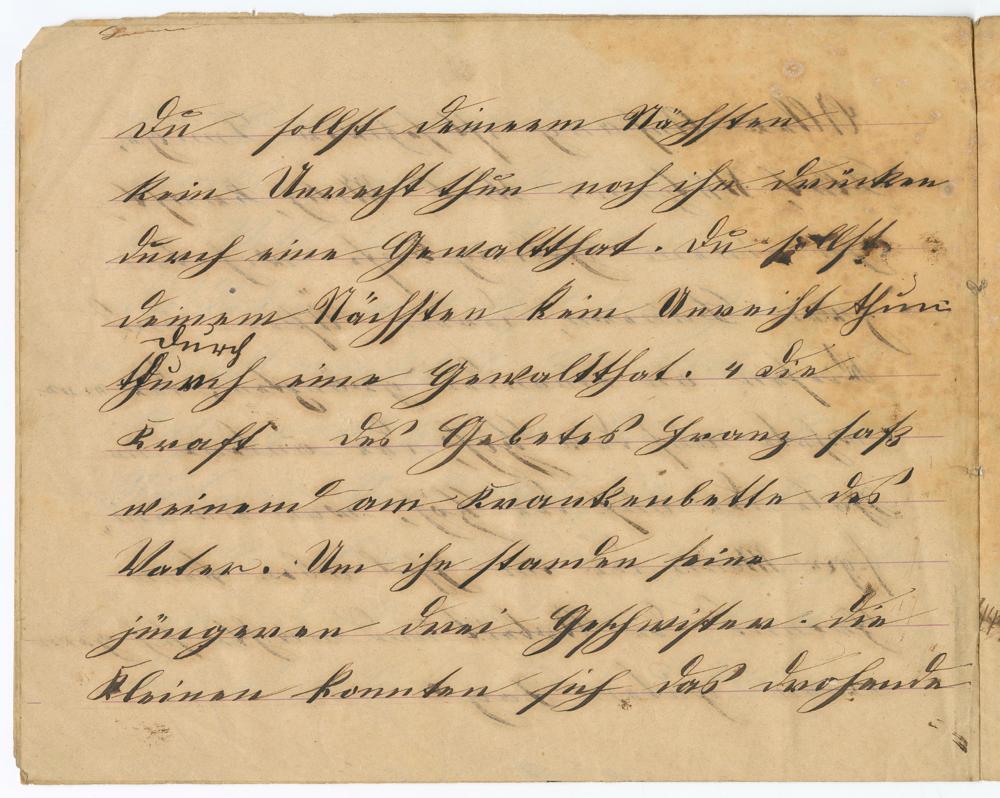 Du sollst deinem Nächsten
kein Unrecht thun noch ihn drücken
durch eine Gewaltthat. Du sollst
deinem Nächsten kein Unrecht thun
durch
durch eine Gewaltthat. " Die
Kraft des Gebetes Franz saß
weinend am Krankenbette des
Vater. Um ihn standen seine
jüngeren drei Geschwister. Die
Kleinen konnten sich das drohende